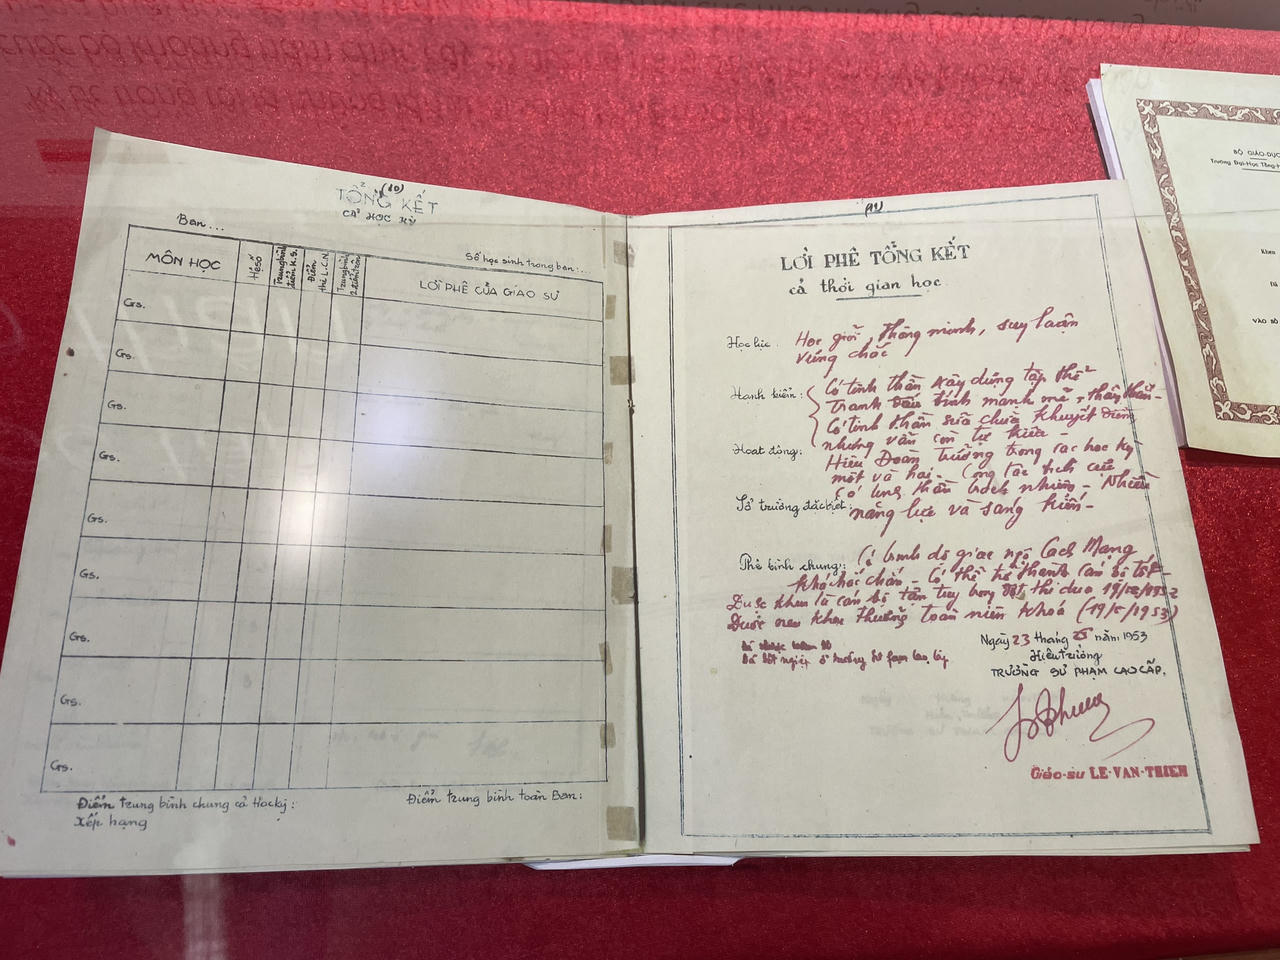 (10)
TỔNG KẾT
CẢ HỌC KỲ
Ban...
Số học sinh trong ban:...
MÔN HỌC
Hệ số
Trung bình điểm K.S.
Điểm thi L.C.N.
Trung bình 2 điểm trên
LỜI PHÊ CỦA GIÁO SƯ
Gs.
Gs.
Gs.
Gs.
Gs.
Gs.
Gs.
Gs.
Gs.
Điểm trung bình chung cả Học kỳ:
Điểm trung bình toàn Ban:
Xếp hạng
LỜI PHÊ TỔNG KẾT
cả thời gian học
Học lực: Học giỏi, thông minh, suy luận
vững chắc
Hạnh kiểm: Có tinh thần xây dựng tập thể
Tranh đấu tính mạnh mẽ, thân thiết
Có tinh thần sửa chữa khuyết điểm
nhưng vẫn còn tự kiêu
Hoạt động: Hiệu Đoàn trưởng trong các học kỳ
một và hai. Công tác tích cực
Có tinh thần trách nhiệm. Nhiều
Sở trường đặc biệt: năng lực và sáng kiến
Phê bình chung: Có trình độ giác ngộ Cách Mạng
khá chắc chắn. Có thể trở thành cán bộ tốt
Được khen là cán bộ tận tụy trong thi đua
Được khen thưởng toàn niên khoá (19/5/1953)
Ngày 23 tháng năm 1953
Hiệu trưởng
TRƯỜNG SƯ PHẠM CAO CẤP.
Giáo-sư LE-VAN-THIEM
BỘ GIÁO-DỤC
Trường Đại-Học Tổng-H
Khen
VÀO SỐ